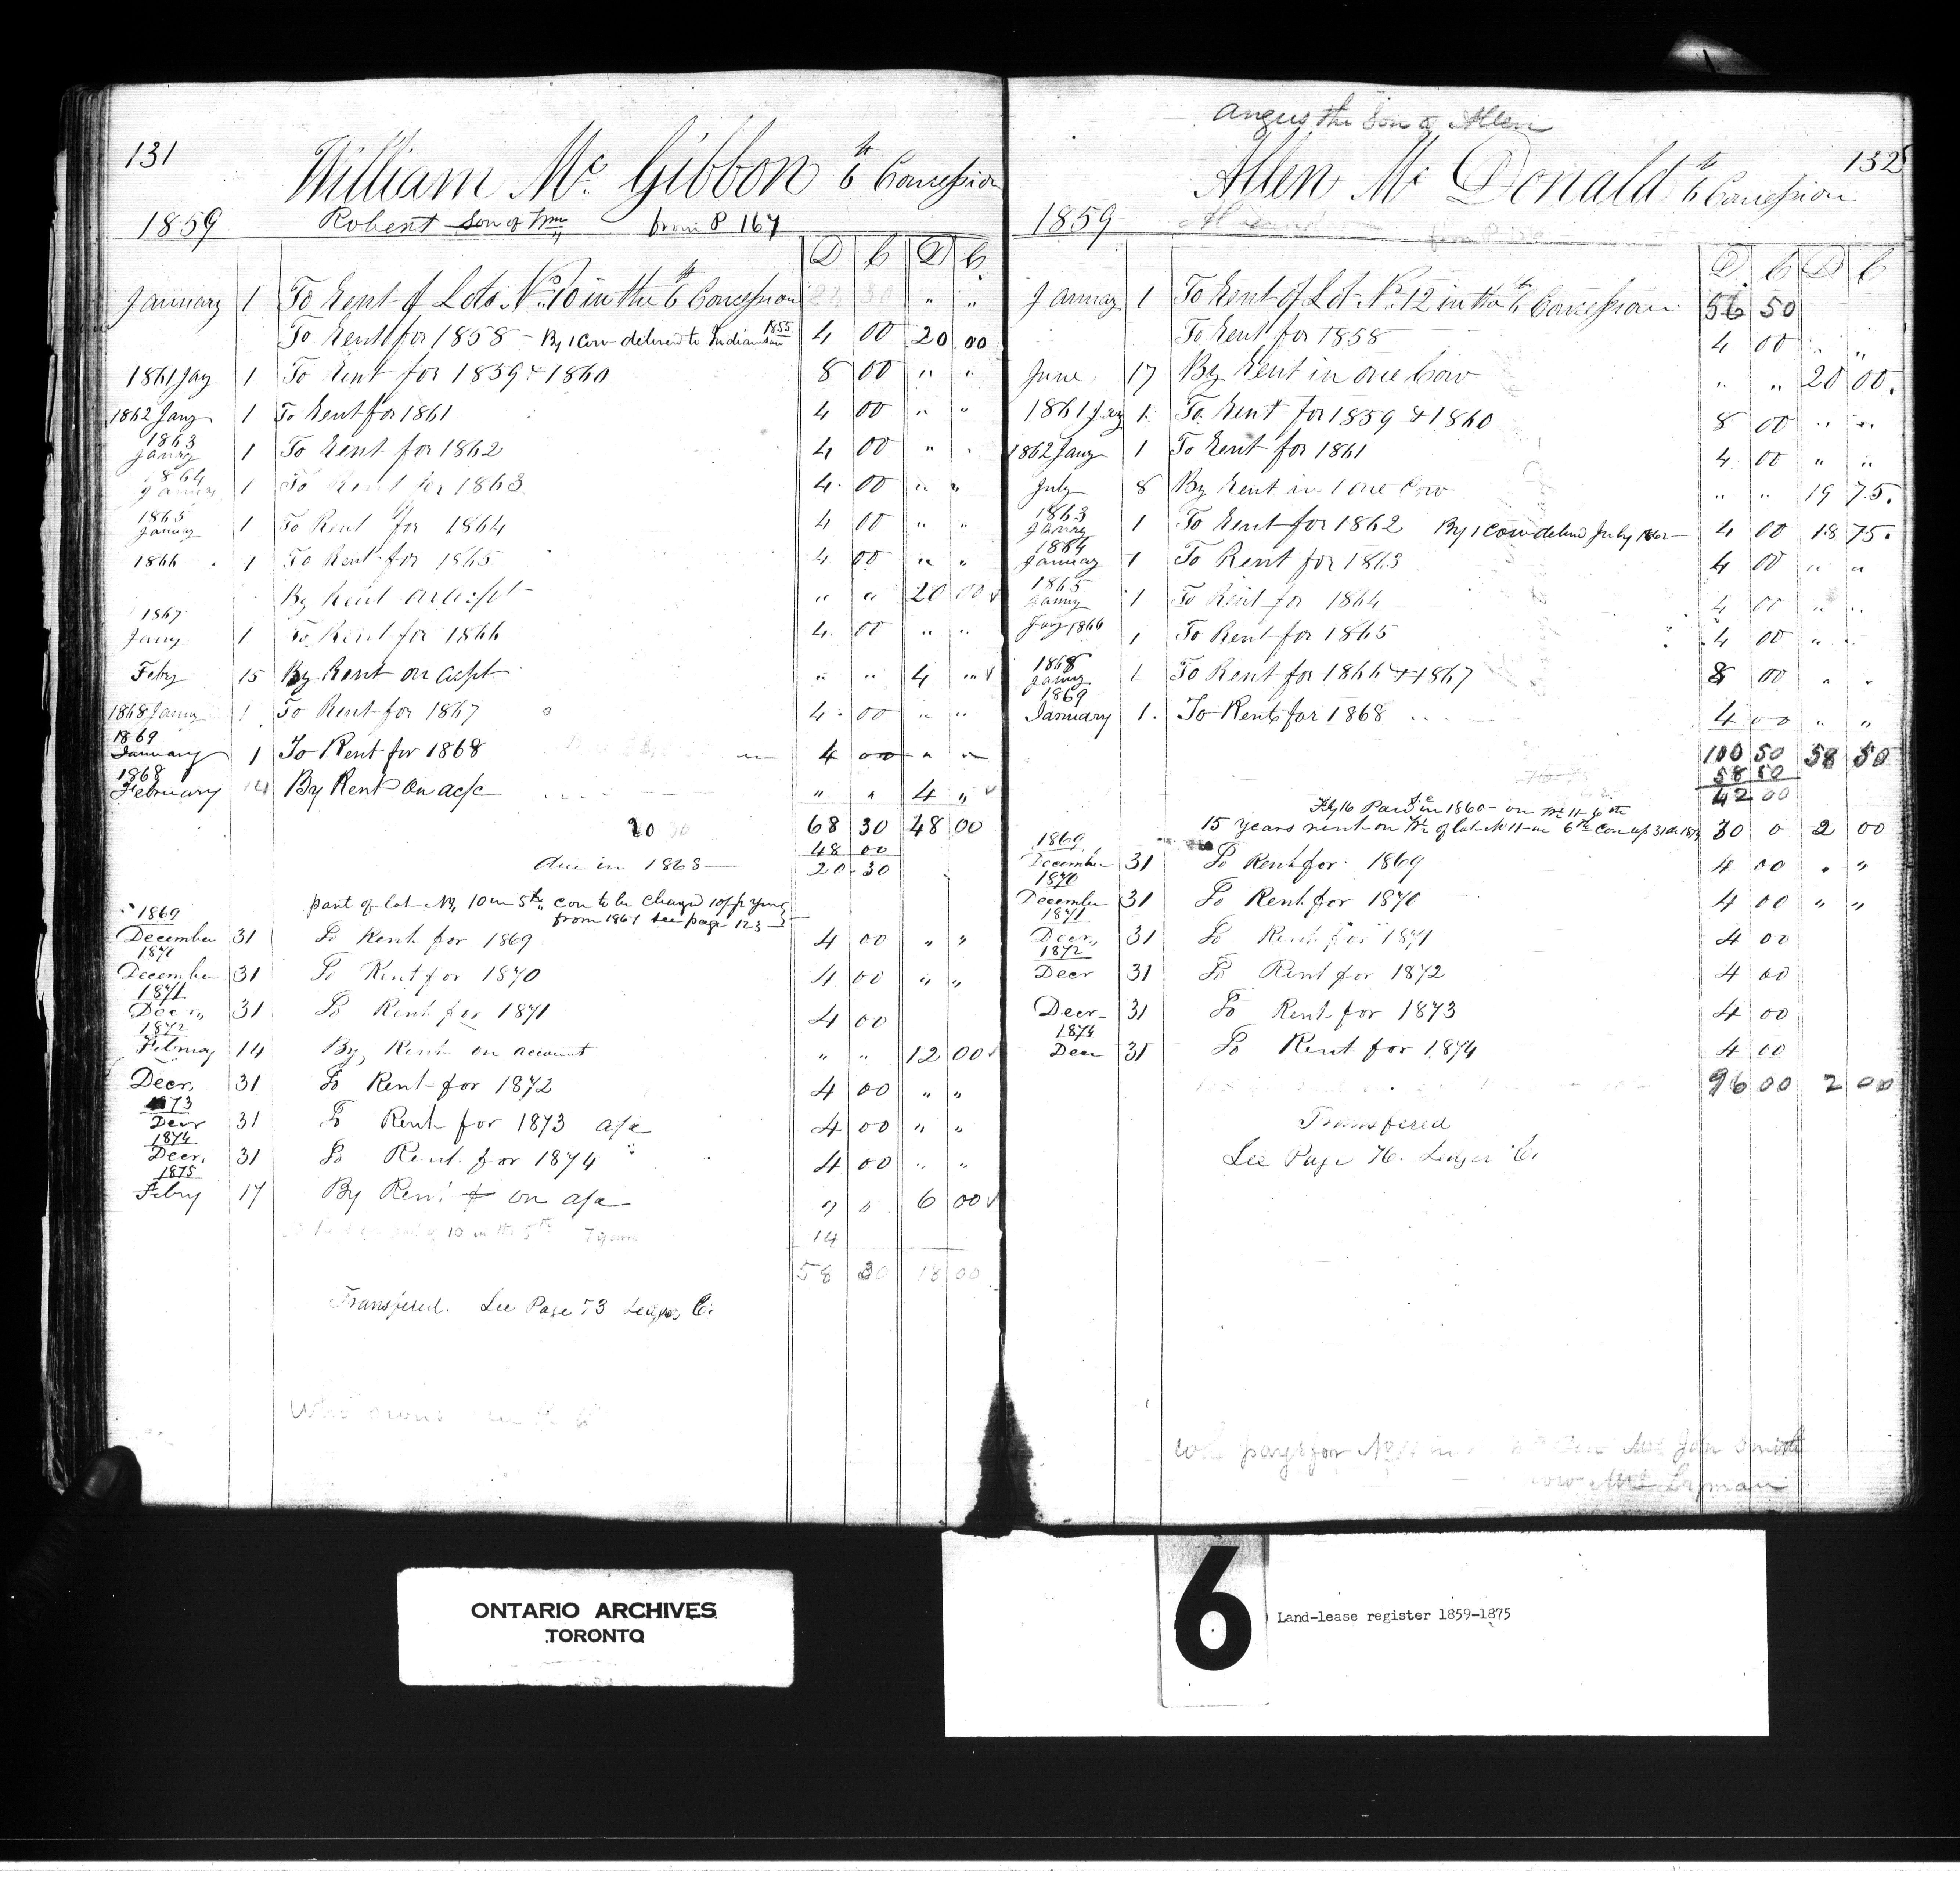 131
William Mc Gibbon 6th Concession
1859 Robert son of Wm from P 167
D C D C
January 1 To Rent of Lots No 10 in the 6th Concession 22 30 " "
To Rent for 1858 - By 1 Cow delivered to Indians 1855 4 00 20 00
1861 Jay 1 To Rent for 1859 & 1860 8 00 " "
1862 Jany 1 To Rent for 1861 4 00 " "
1863
Jany 1 To Rent for 1862 4 00 " "
1864
Jany 1 To Rent for 1863 4 00 " "
1865
January 1 To Rent for 1864 4 00 " "
1866 1 To Rent for 1865 4 00 " "
By Rent on acpt " " 20 00
1867
Jany 1 To Rent for 1866 4 00 " "
Feby 15 By Rent on acpt " " 4 "
1868 Jany 1 To Rent for 1867 4 00 " "
1869
January 1 To Rent for 1868 4 00 " "
1868
February 14 By Rent on a/c " " 4 "
20 30 68 30 48 00
48 00
due in 1868 20 30
part of lot No 10 in 5th con to be charged
1869 from 1867 see page 123
December 31 To Rent for 1869 4 00 " "
1870
December 31 To Rent for 1870 4 00 " "
1871
Decr 31 To Rent for 1871 4 00
1872
February 14 By Rent on account " " 12 00
Decr 31 To Rent for 1872 4 00 " "
1873
Decr 31 To Rent for 1873 a/c 4 00 " "
1874
Decr 31 To Rent for 1874 4 00 " "
1875
Febry 17 By Rent on a/c " " 6 00
10 in the 5th 7 years 14
58 30 18 00
Transfered. See Page 73 Ledger C.
Who owns
Angus the Son of Allen
132
Allen Mc Donald 6th Concession
1859 Alexander
D C D C
January 1 To Rent of Lot No 12 in the 6th Concession 56 50
To Rent for 1858 4 00 " "
June 17 By Rent in one Cow " " 20 00.
1861 Jay 1 To Rent for 1859 & 1860 8 00 " "
1862 Jany 1 To Rent for 1861 4 00 " "
July 8 By Rent in 1 one Cow " " 19 75.
1863
Janry 1 To Rent for 1862 By 1 Cow delivd July 1862 4 00 18 75.
1864
January 1 To Rent for 1863 4 00 " "
1865
Janny 1 To Rent for 1864 4 00 " "
Jany 1866 1 To Rent for 1865 4 00 " "
1868
Janny 1 To Rent for 1866 & 1867 8 00 " "
1869
January 1. To Rent for 1868 4 00 " "
100 50 58 50
58 50
42 00
Feby 16 Paid in 1860 - on 11 - 6th
15 years rent on of lot No 11 in 6th Con up 31 de 1873 30 0 2 00
1869
December 31 To Rent for 1869 4 00 " "
1870
December 31 To Rent for 1870 4 00 " "
1871
Decer 31 To Rent for 1871 4 00
1872
Decr 31 To Rent for 1872 4 00
Decr 31 To Rent for 1873 4 00
1874
Decr 31 To Rent for 1874 4 00
96 00 2 00
Transfered
See Page 76. Ledger C.
who pays for No Mrs John Smith
now Mrs Lipman
ONTARIO ARCHIVES
TORONTO
6
Land-lease register 1859-1875